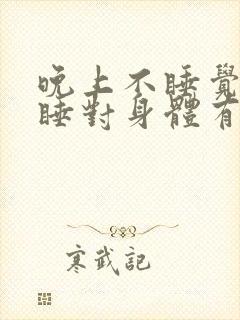 晚上不睡覺
睡對身體有
寒武記